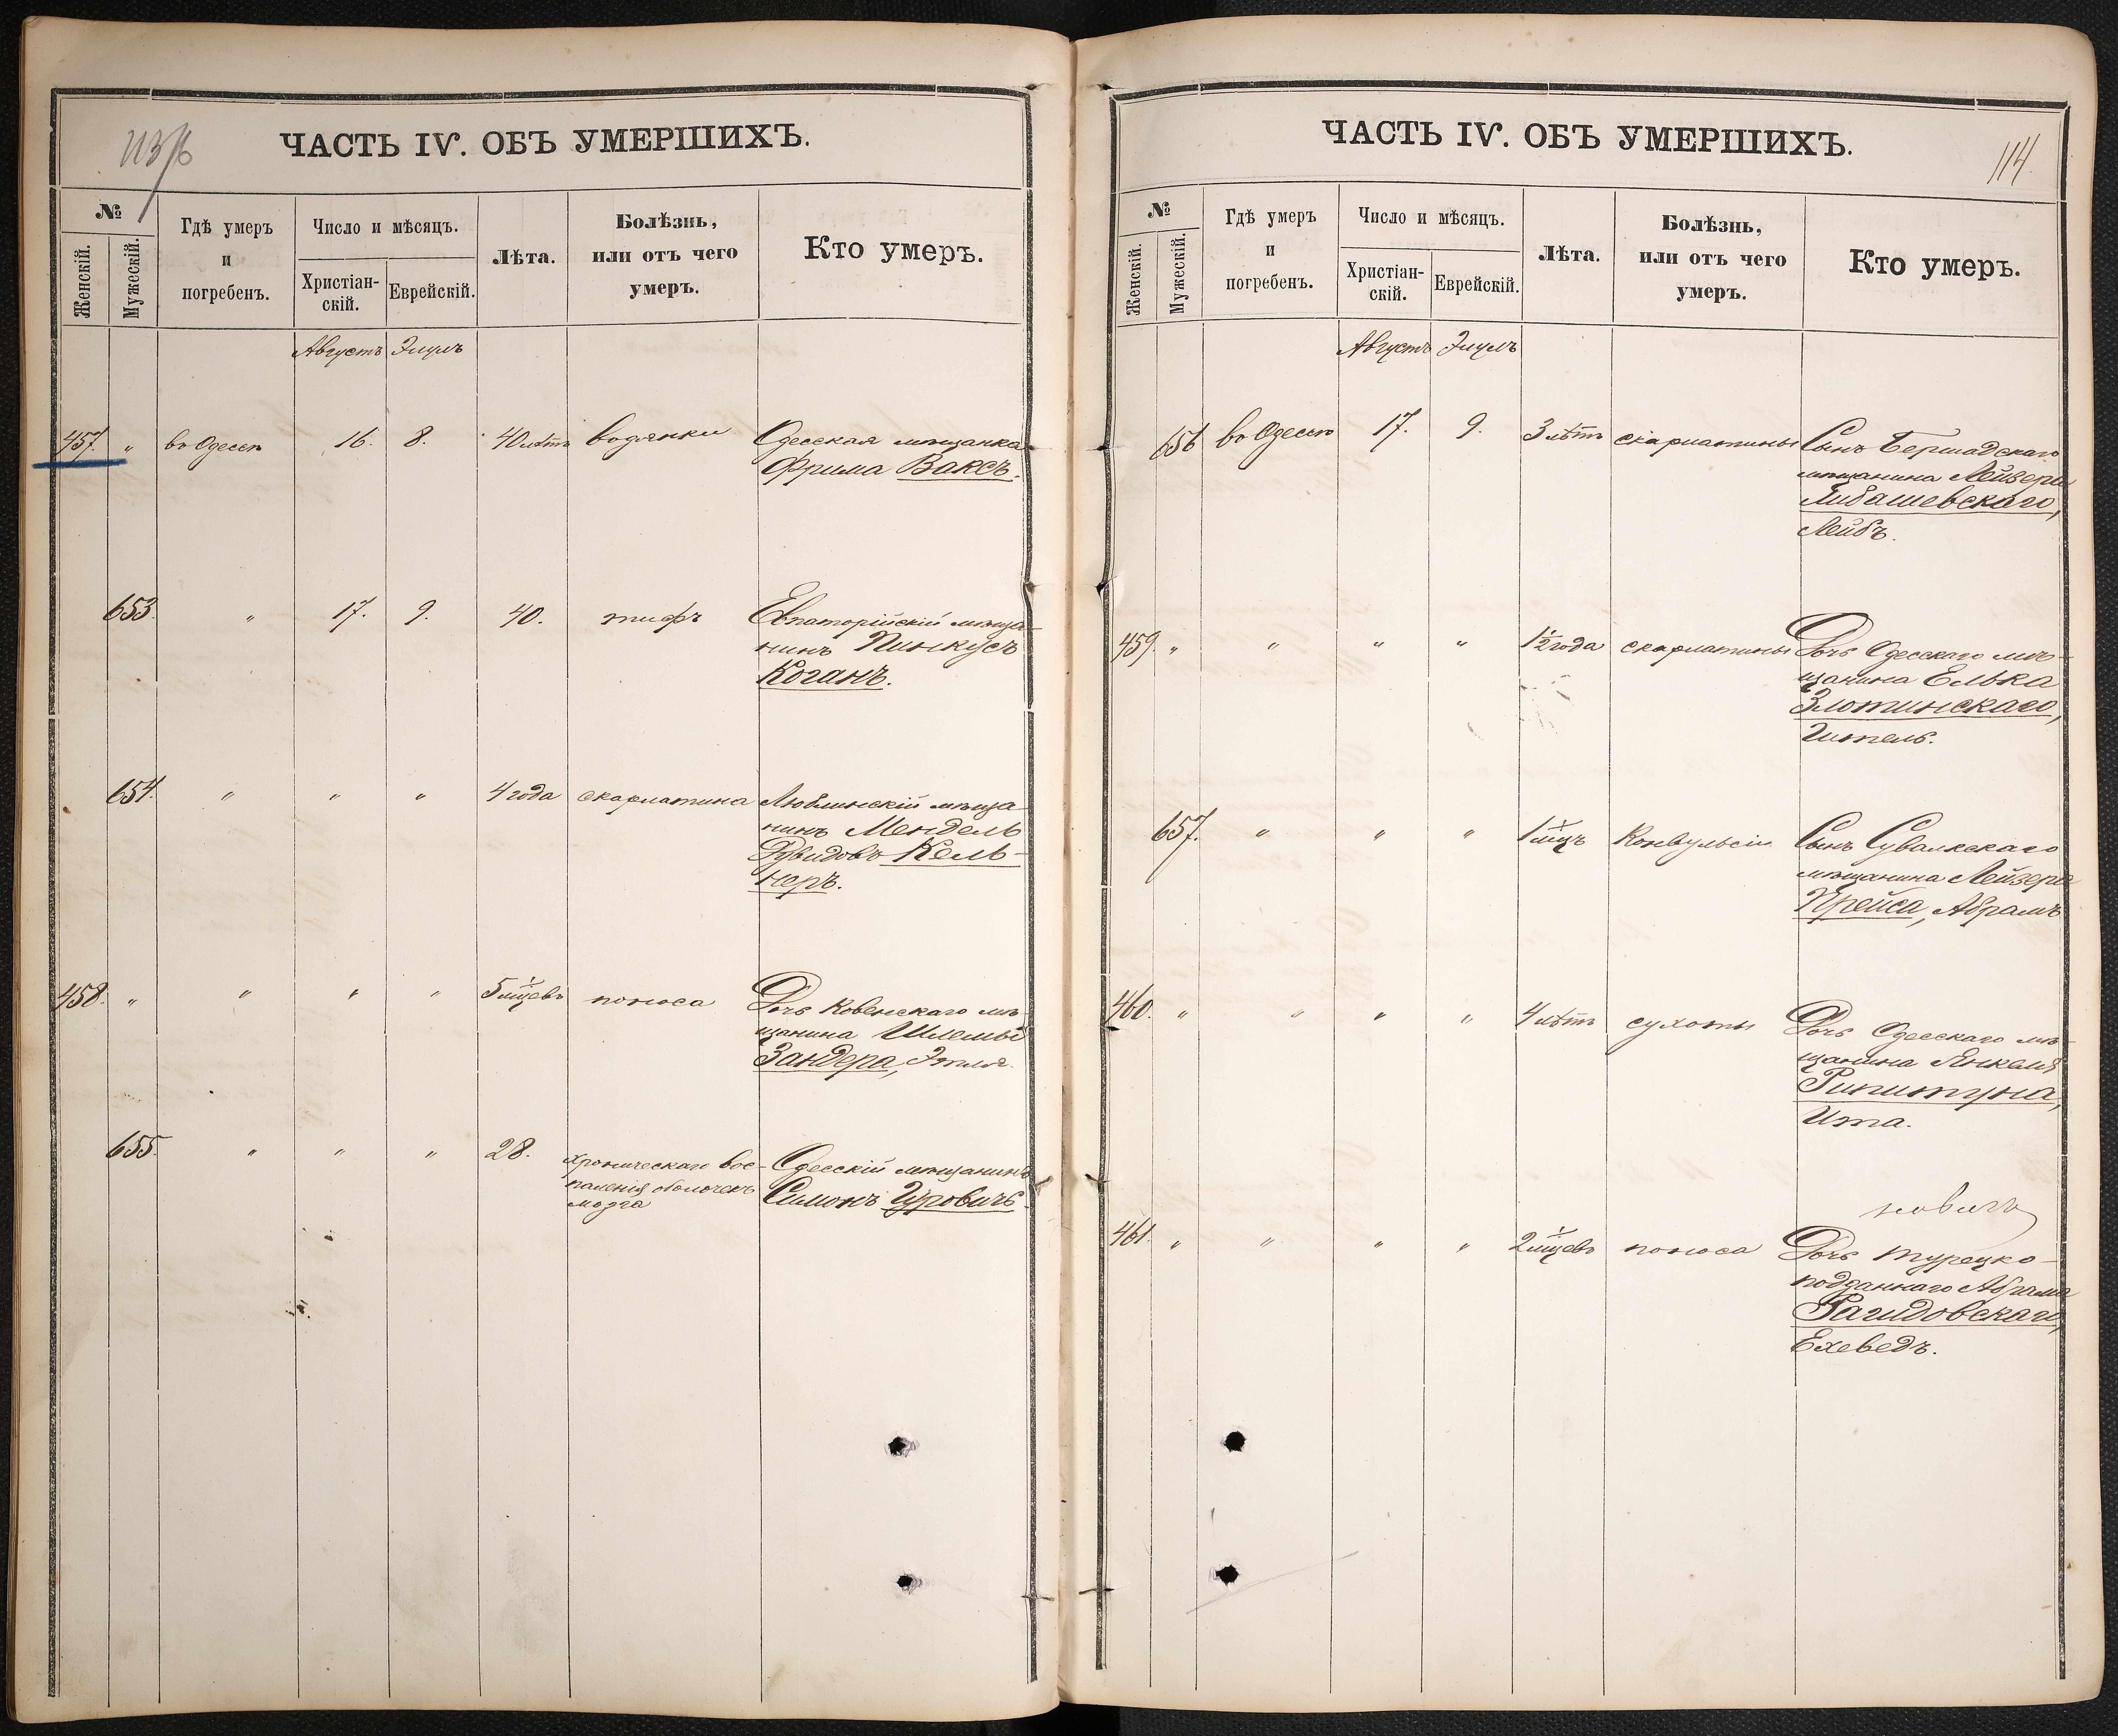 113/б
ЧАСТЬ IV. ОБЪ УМЕРШИХЪ.
№
Женскій.
Мужескій.
Гдѣ умеръ
и
погребенъ.
Число и мѣсяцъ.
Христіан-
скій.
Еврейскій.
Лѣта.
Болѣзнь,
или отъ чего
умеръ.
Кто умеръ.
Августъ Элулъ
457. " въ Одессѣ 16. 8. 40 лѣтъ водянки Одесская мѣщанка
Фрима Ваксъ.
653. " 17. 9. 40. тифъ Евпаторійскій мѣща-
нинъ Пинкусъ
Коганъ.
654. " " " 4 года скарлатина Люблинскій мѣща-
нинъ Мендель
Рувидовъ Кель-
неръ.
458. " " " " 5 мцевъ поноса Дочь Ковенскаго мѣ-
щанина Шлемы
Зандера, Этля.
655. " " " 28. хроническаго вос-
паленія оболочекъ
мозга
Одесскій мѣщанинъ
Симонъ Гуровичъ.
114.
ЧАСТЬ IV. ОБЪ УМЕРШИХЪ.
№
Женскій.
Мужескій.
Гдѣ умеръ
и
погребенъ.
Число и мѣсяцъ.
Христіан-
скій.
Еврейскій.
Лѣта.
Болѣзнь,
или отъ чего
умеръ.
Кто умеръ.
Августъ Элулъ
656 въ Одессѣ 17. 9. 3 лѣтъ скарлатины Сынъ Бершадскаго
мѣщанина Лейзера
Любашевскаго,
Лейбъ.
459. " " " " 1½ года скарлатины Дочь Одесскаго мѣ-
щанина Елька
Злотинскаго,
Гитель.
657. " " " 1 мцъ Конвульсіи Сынъ Сувалкскаго
мѣщанина Лейзера
Прейса, Абрамъ
460. " " " " 4 лѣтъ сухоты Дочь Одесскаго мѣ-
щанина Янкеля
Рипитуна,
Ита.
новичъ
461. " " " " 2 мцевъ поноса Дочь турецко-
подданнаго Абрама
Рагидовскаго,
Ехеведъ.